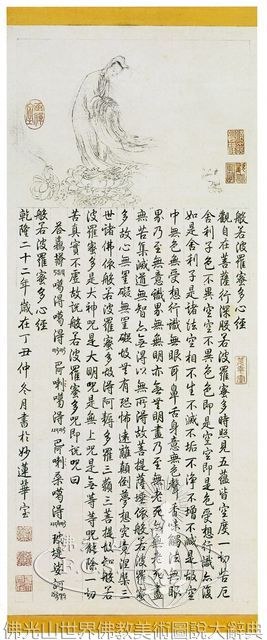 般若波羅蜜多心經
觀自在菩薩行深般若波羅蜜多時照見五蘊皆空度一切苦厄
舍利子色不異空空不異色色即是空空即是色受想行識亦復
如是舍利子是諸法空相不生不滅不垢不淨不增不減是故空
中無色無受想行識無眼耳鼻舌身意無色聲香味觸法無眼
界乃至無意識界無無明亦無無明盡乃至無老死亦無老死盡
無苦集滅道無智亦無得以無所得故菩提薩埵依般若波羅蜜
多故心無罣礙無罣礙故無有恐怖遠離顛倒夢想究竟涅槃三
世諸佛依般若波羅蜜多故得阿耨多羅三藐三菩提故知般若
波羅蜜多是大神咒是大明咒是無上咒是無等等咒能除一切
苦真實不虛故說般若波羅蜜多咒即說咒曰
噶得噶得
般若波羅蜜多心經
乾隆二十二年歲在丁丑仲冬月書於妙蓮華室
佛光山世界佛教美術圖說大辭典